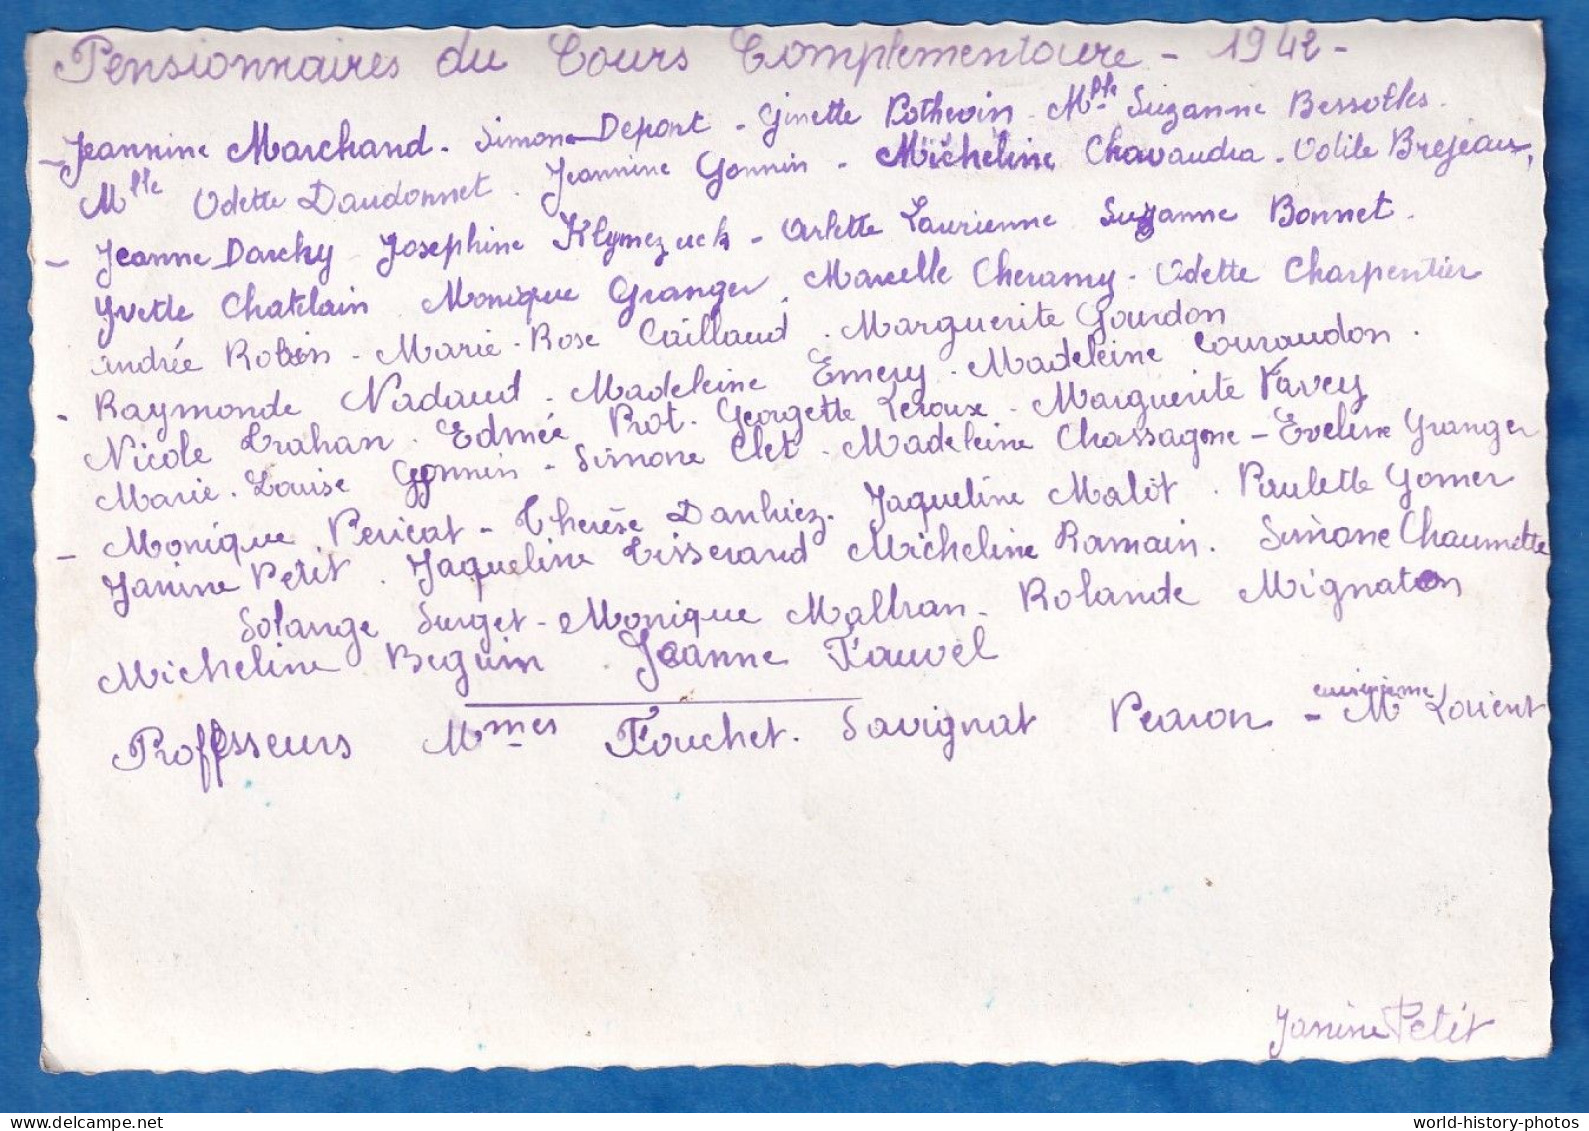 Pensionnaires du Cours Complementaire - 1942 -
- Jeannine Marchand. Simone Depont - Ginette Pothevin - Mlle Suzanne Bessolles.
Mlle Odette Daudonnet. Jeannine Gonnin - Micheline Chavaudra - Odile Brejeaux,
- Jeanne Darchy Josephine Klymezuck - Arlette Laurienne Suzanne Bonnet.
Yvette Chatelain Monique Granger. Marcelle Cheramy - Odette Charpentier
Andrée Robin - Marie-Rose Caillaud. Marguerite Gourdon
- Raymonde Nadaud. Madeleine Emery. Madeleine Couraudon.
Nicole Trahan. Edmée Prot. Georgette Leroux. Marguerite Favey
Marie-Louise Gonnin - Simone Clet. Madeleine Chassagne - Eveline Granger
- Monique Pericat - Therèse Danhiez. Jaqueline Malot. Paulette Gomer
Janine Petit. Jaqueline Tisserand Micheline Romain. Simone Chaumette
Solange Surget - Monique Mallran - Rolande Mignaton
Micheline Beguin Jeanne Fauvel
Professeurs Mmes Fouchet. Savignat Pearon - cuisinière Mme Lorient
Janine Petit
world-history-photos